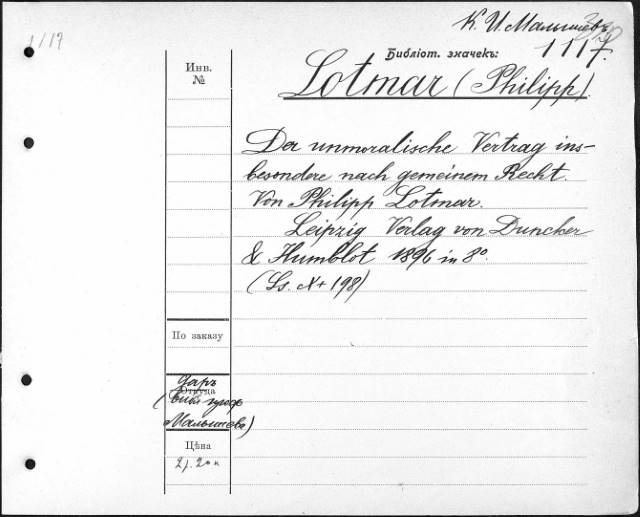 К. И. Малышевъ
1/117
1117.
Библіот. значекъ:
Инв.
№
Lotmar (Philipp).
Der unmoralische Vertrag ins-
besondere nach gemeinem Recht.
Von Philipp Lotmar.
Leipzig Verlag von Duncker
& Humblot 1896 in 8º.
(Ss. X + 198)
По заказу
Даръ
Откуда
(библ проф
Малышева)
Цѣна
2 р. 20 к